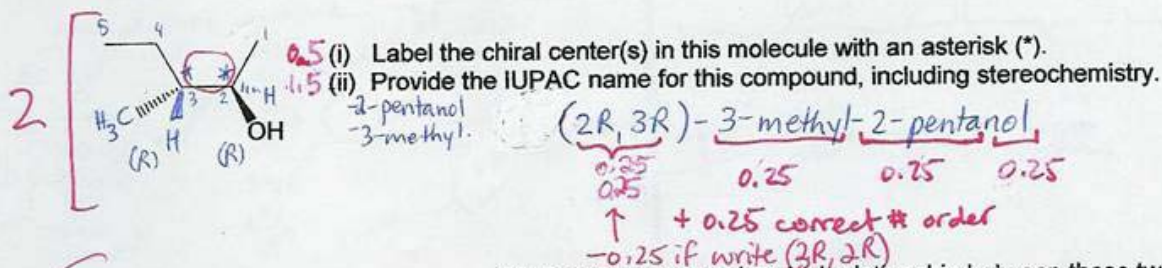 5 4 1
0.5 (i) Label the chiral center(s) in this molecule with an asterisk (*).
1.5 (ii) Provide the IUPAC name for this compound, including stereochemistry.
2
* *
3 2
H
H₃C
H
OH
(R) (R)
-2-pentanol
-3-methyl.
(2R, 3R) - 3-methyl-2-pentanol
0.25 0.25 0.25 0.25
0.25
↑ + 0.25 correct # order
-0.25 if write (3R, 2R)